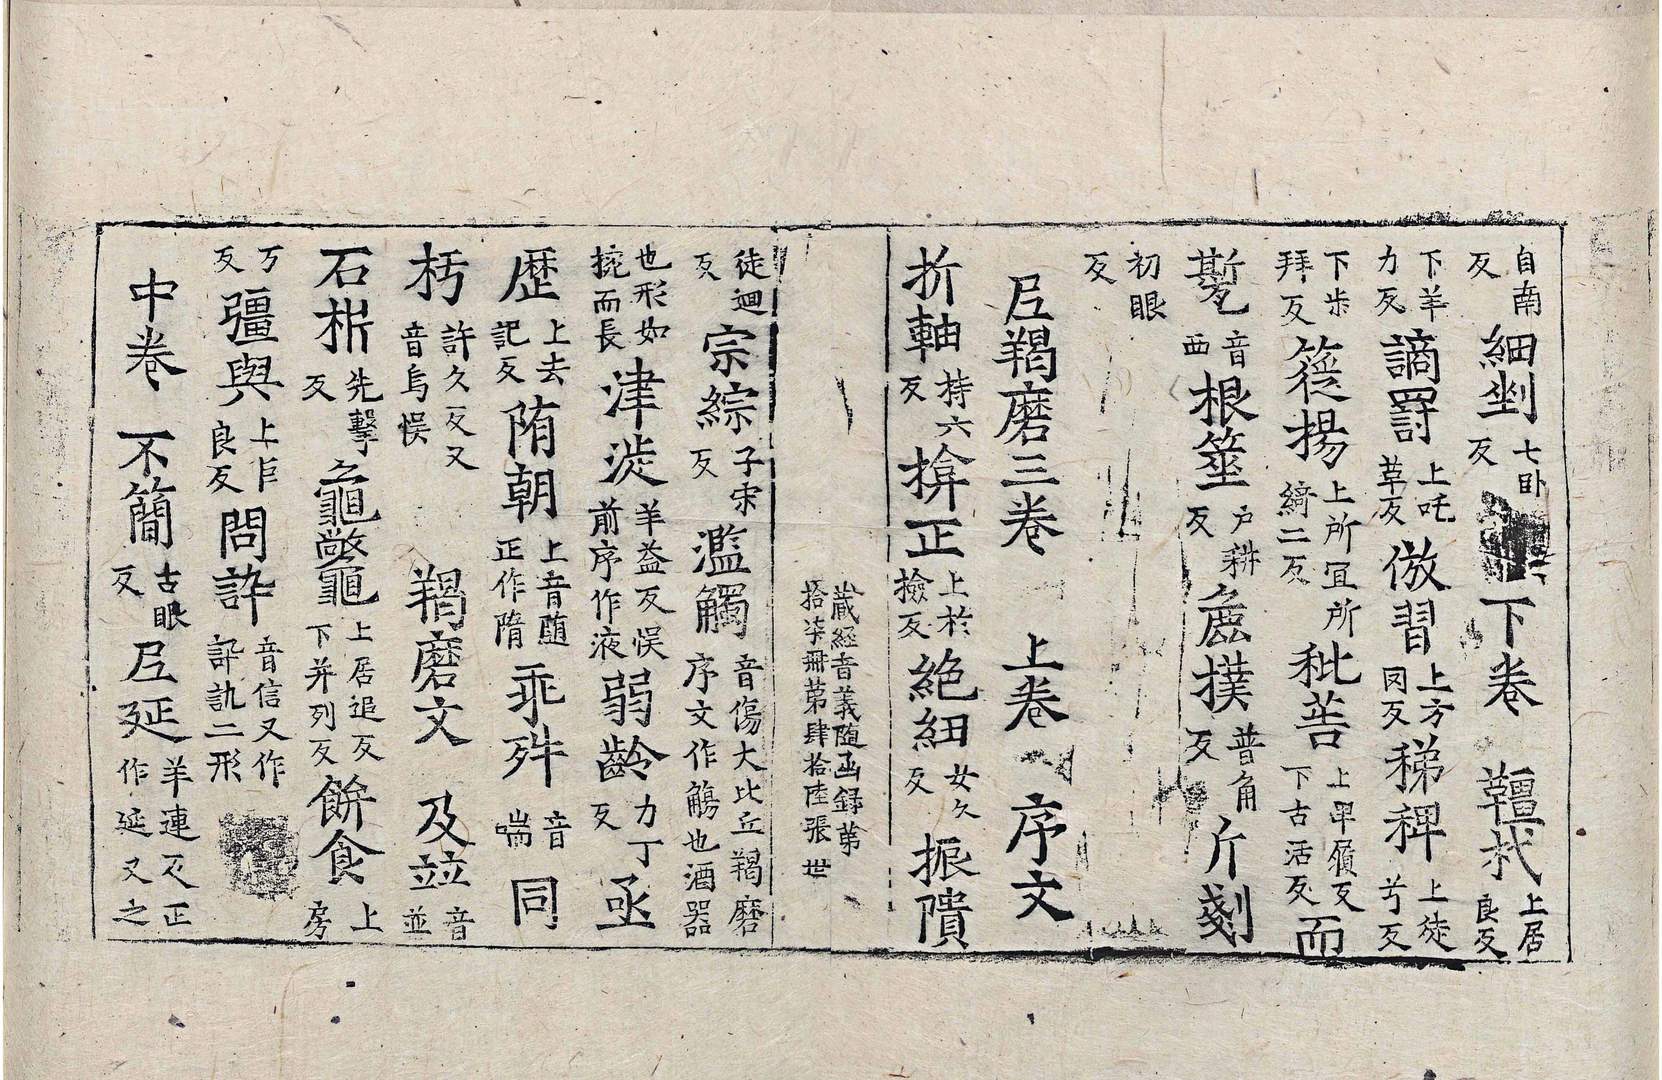 自南反細剉七臥反下卷韁杙上居良反
下羊力反謫罸上吒草反倣習上方罔反稊稗上徒兮反
下步拜反簁揚上所冝所綺二反秕善上卑履反下古活反而
㽄音西根䇥戶耕反麁撲普角反斤剗
初眼反
尼羯磨三卷 上卷 序文
折軸持六反揜正上於撿反絶細女久反振隤
藏經音義隨函録第拾柒冊第肆拾陸張 世
徒迴反宗綜子宋反濫觸音傷大比丘羯磨序文作觴也酒器
也形如椀而長津㳣羊益反悮前序作液弱齡力丁反亟
歷上去記反隋朝上音随正作隋乖舛音喘同
杇許久反又音烏悮 羯磨文 及竝音並
石㭊先擊反龜鼈上居追反下并列反餅食上房
丂反彊與上巨良反問訃音信又作訙訊二形
中卷 不簡古眼反尼延羊連反正作延又之